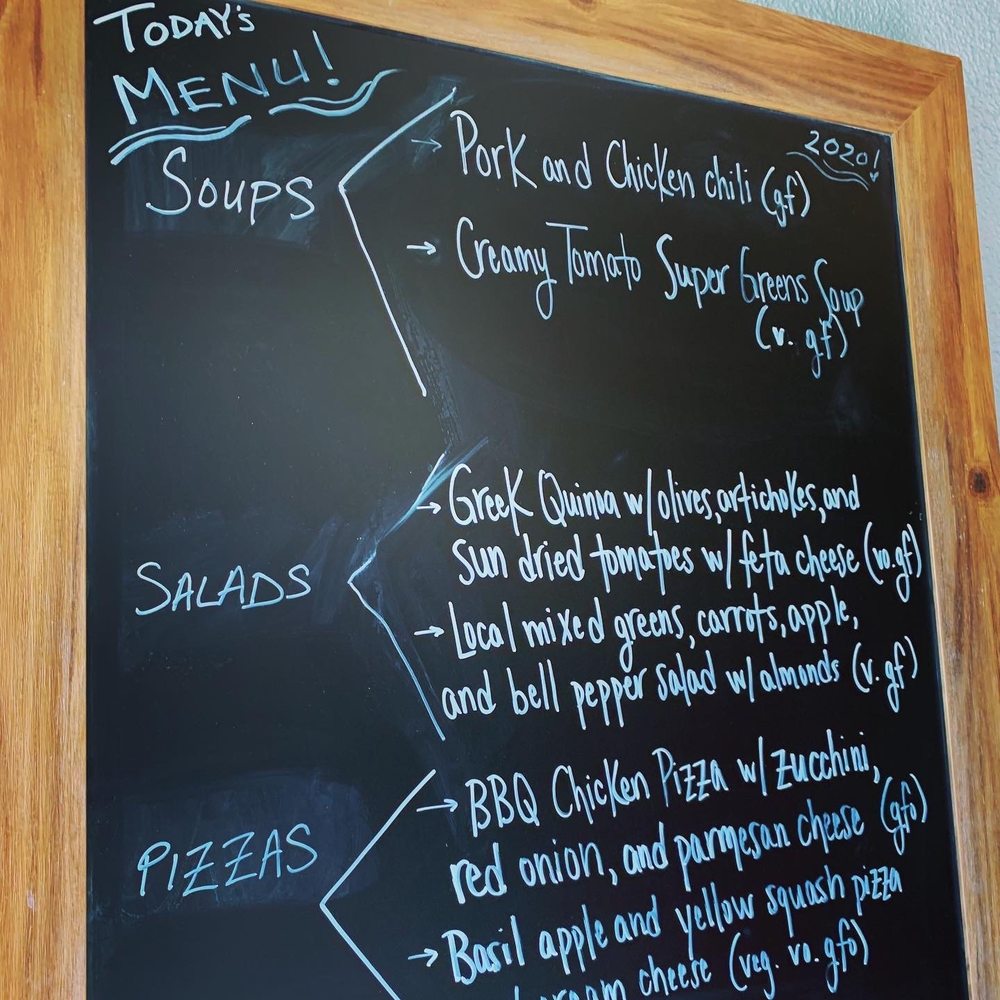 TODAY'S
MENU!
2020!
SOUPS
→ Pork and Chicken chili (gf)
→ Creamy Tomato Super Greens Soup
(v. gf)
SALADS
→ Greek Quinoa w/olives, artichokes, and
sun dried tomatoes w/ feta cheese (vo.gf)
→ Local mixed greens, carrots, apple,
and bell pepper salad w/almonds (v. gf)
PIZZAS
→ BBQ Chicken Pizza w/ zucchini,
red onion, and parmesan cheese (gfo)
→ Basil apple and yellow squash pizza
cream cheese (veg. vo. gfo)